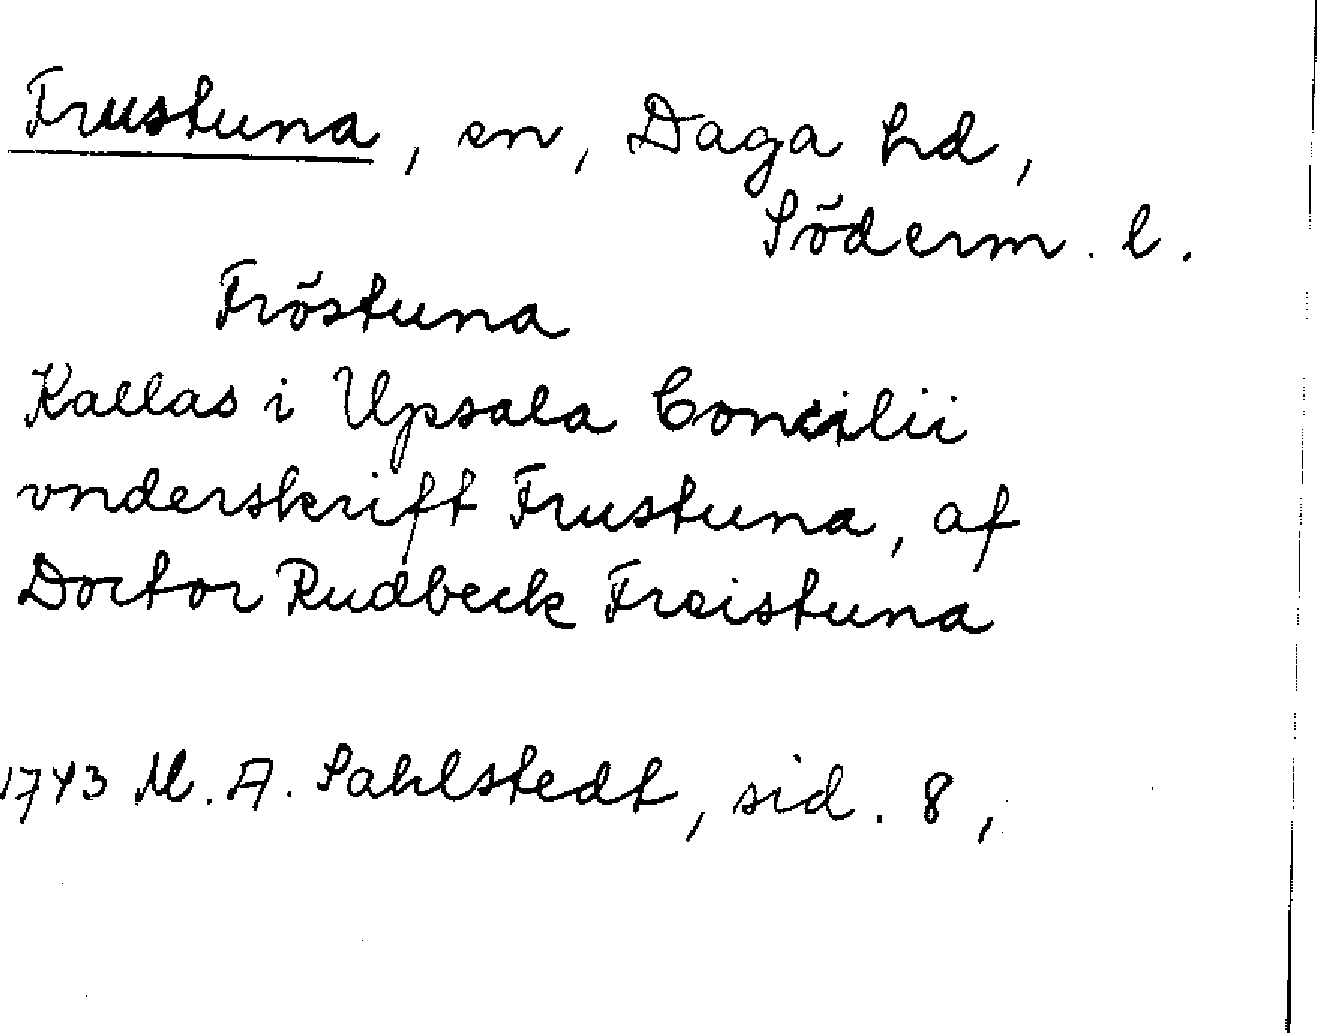 Frustuna, sn, Daga hd,
Söderm. l.
Fröstuna
Kallas i Upsala Concilii
vnderskrift Frustuna, af
Doctor Rudbeck Freistuna
1743 M. A. Sahlstedt, sid. 8,